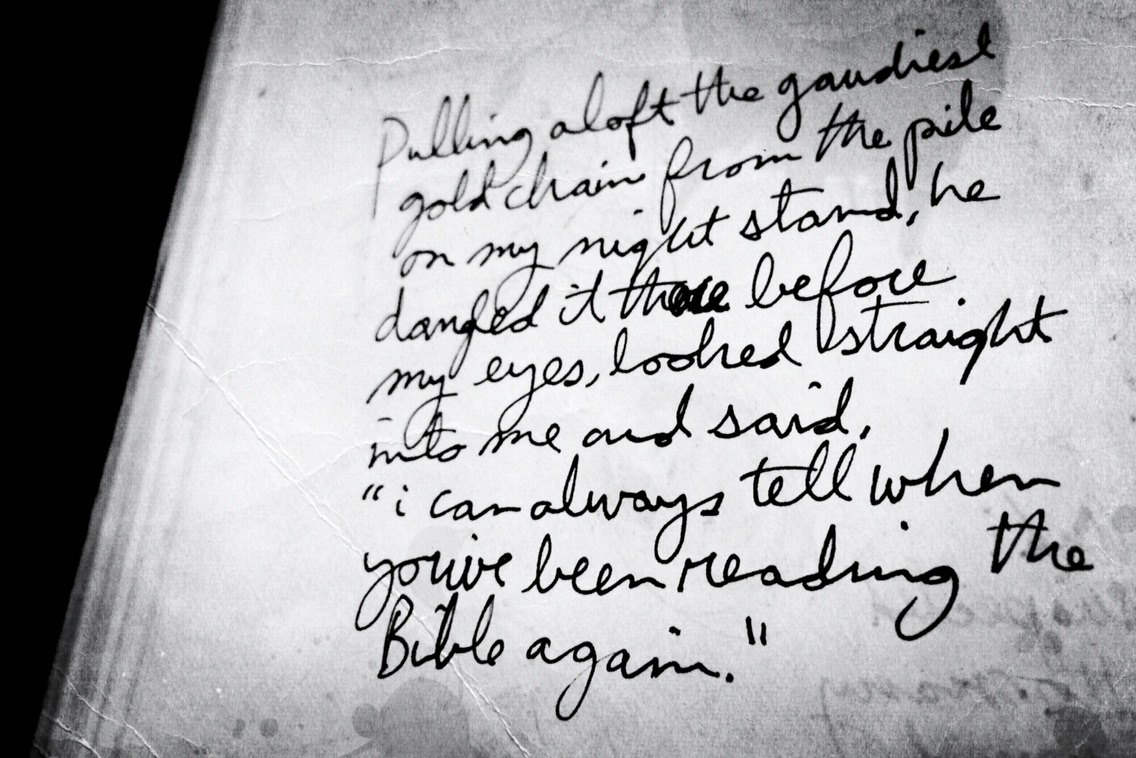 Pulling aloft the gaudiest
gold chain from the pile
on my night stand, he
dangled it there before
my eyes, looked straight
into me and said,
"i can always tell when
you've been reading the
Bible again."